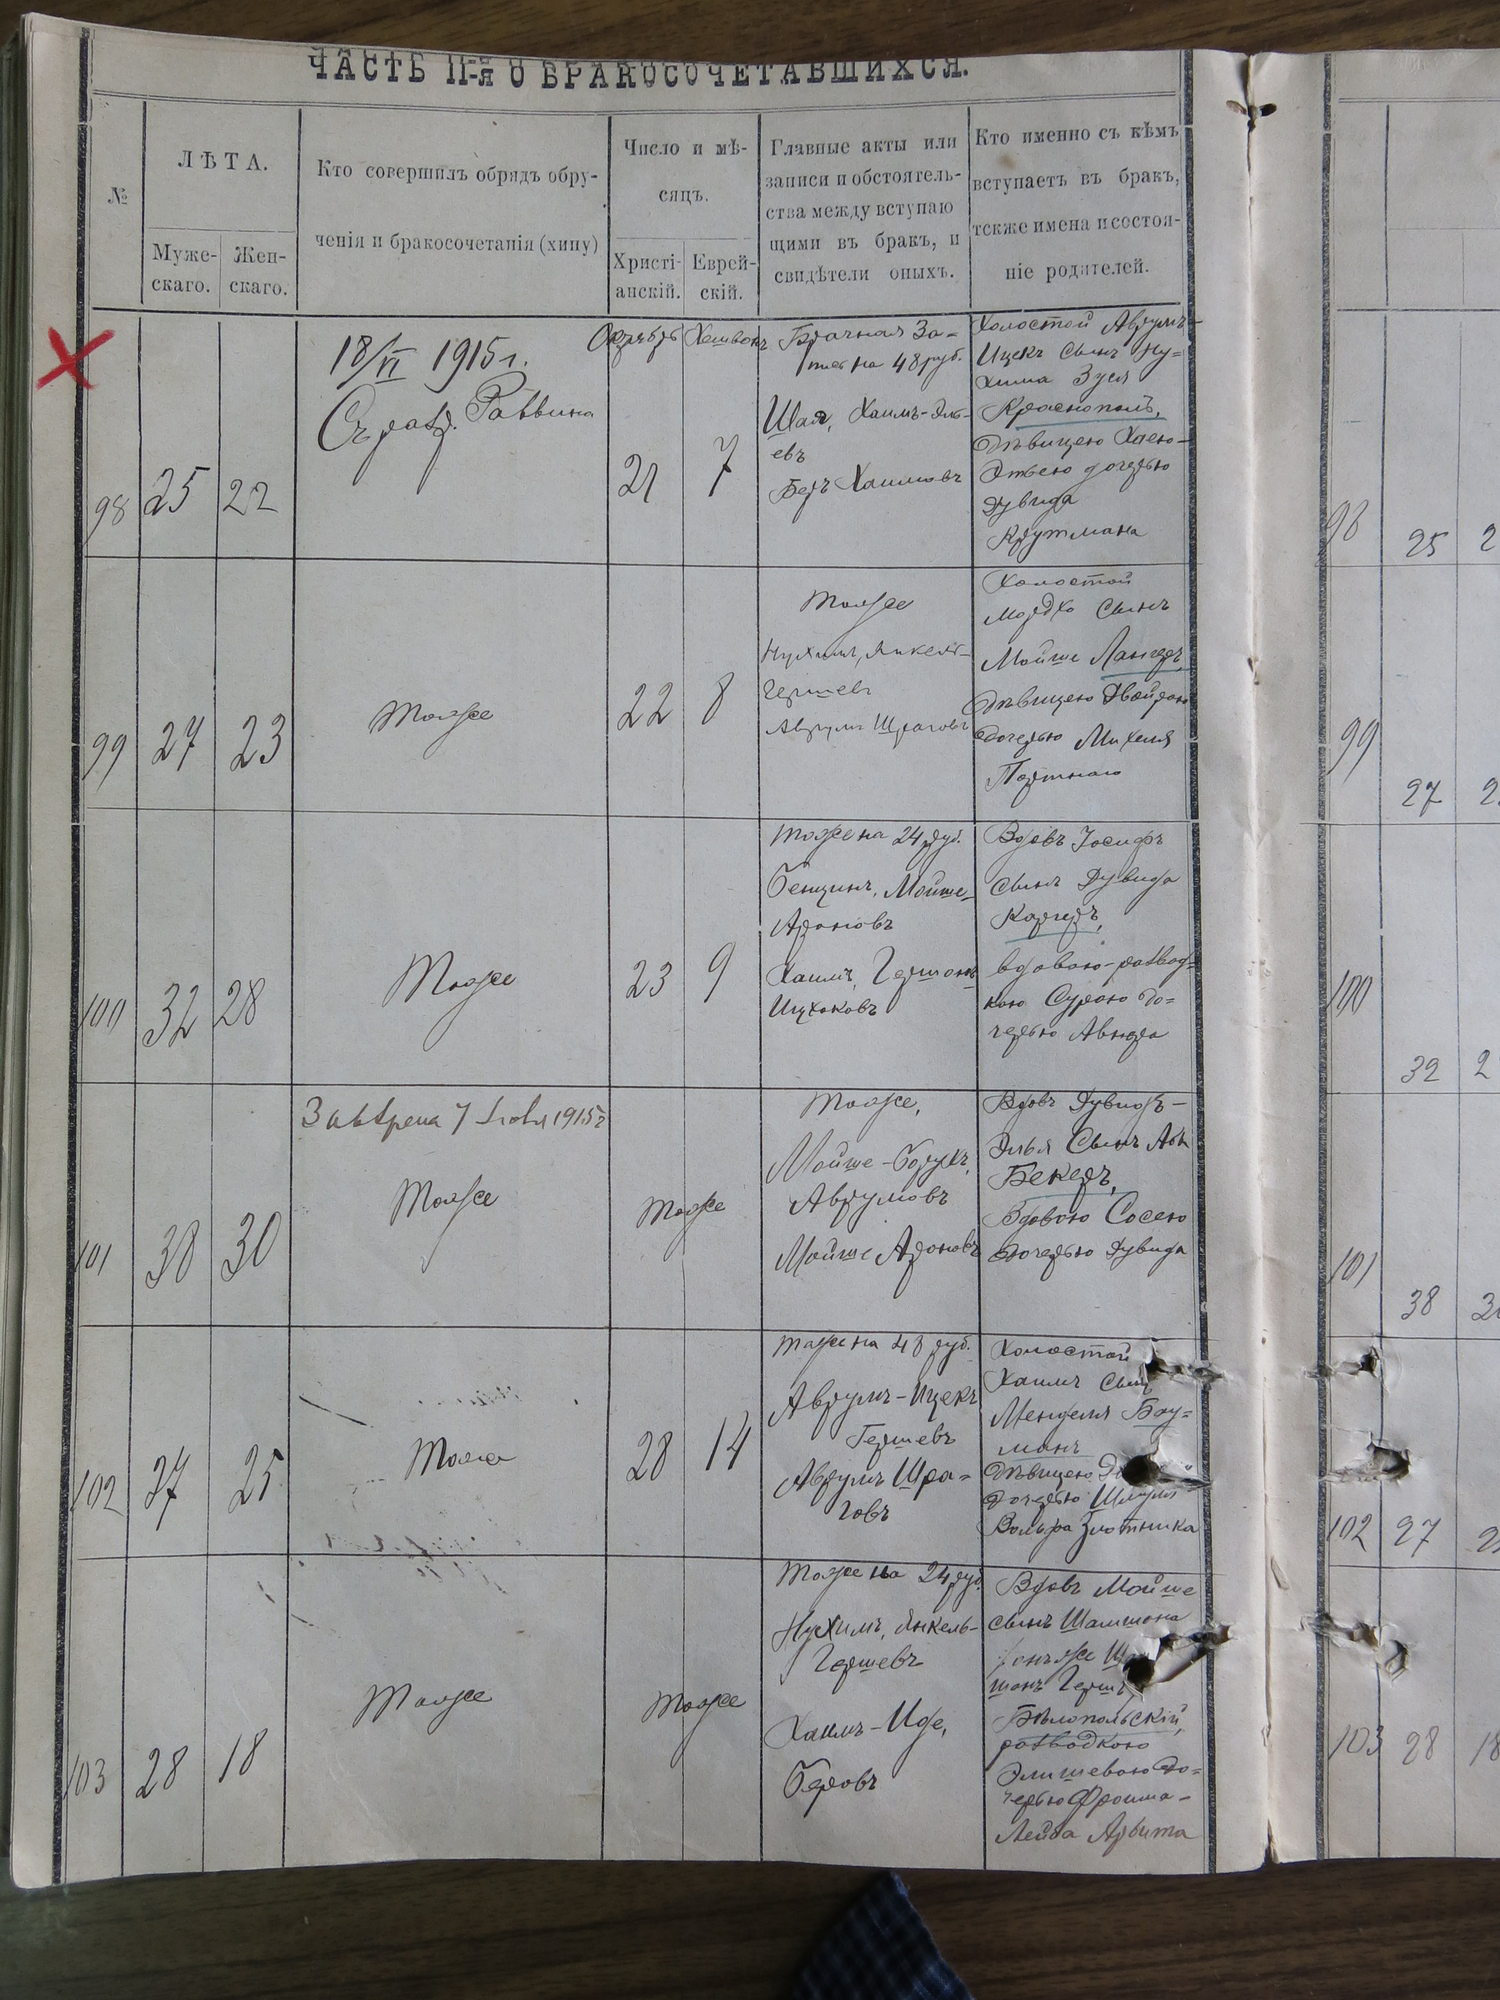 ЧАСТЬ II-я О БРАКОСОЧЕТАВШИХСЯ.
№
ЛѢТА.
Муже-
скаго.
Жен-
скаго.
Кто совершилъ обрядъ обру-
ченія и бракосочетанія (хипу)
Число и мѣ-
сяцъ.
Христі-
анскій.
Еврей-
скій.
Главные акты или
записи и обстоятель-
ства между вступаю
щими въ бракъ, и
свидѣтели оныхъ.
Кто именно съ кѣмъ
вступаетъ въ бракъ,
также имена и состоя-
ніе родителей.
98
25
22
18/VI 1915 г.
Раввина
Октябрь
21
Хешвонъ
7
Брачная За-
на 48 руб.
Шая, Хаимъ-Эль-
евъ
Беръ Хаимовъ
Холостой Аврумъ-
Ицекъ сынъ Ну-
хима Зуся
Краснополь,
дѣвицею Хаею-
Этлею дочерью
Дувида
Крутмана
99
27
23
Тоже
22
8
Тоже
Нухимъ, Янкель-
Гершевъ
Аврумъ Шраговъ
Холостой
Мордко сынъ
Мойше Лангеръ,
дѣвицею Двойрою
дочерью Михеля
Портного
100
32
28
Тоже
23
9
Тоже на 24 руб.
Бенцинъ, Мойше-
Ароновъ
Хаимъ, Гершонъ
Ицхоковъ
Вдовъ Іосифъ
сынъ Дувида
Корчеръ,
вдовою-развод-
кою Сурою до-
черью Авнера
101
38
30
Завѣрена 7 1915 г
Тоже
Тоже
Тоже,
Мойше-Борухъ,
Аврумовъ
Мойше Ароновъ
Вдовъ Дувидъ-
Элья сынъ Абы
Бекеръ,
Вдовою Сосею
дочерью Дувида
102
37
25
Тоже
28
14
Тоже на 48 руб.
Аврумъ-Ицекъ
Гершевъ
Аврумъ Шра-
говъ
Холостой
Хаимъ сынъ
Менделя Бау-
манъ
дѣвицею
дочерью Шмуля
Вольфа Злотника
103
28
18
Тоже
Тоже
Тоже на 24 руб.
Нухимъ, Янкель-
Гершевъ
Хаимъ-Иде,
Беровъ
Вдовъ Мойше
сынъ Шамшона
онъ же
шонъ Гершъ
Бѣлопольскій,
разводкою
Элишевою до-
черью Фроима-
Лейба Арбита
98
25
99
27
100
32
101
38
102
27
103
28
18